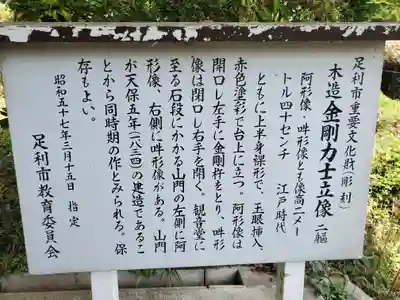 足利市重要文化財(彫刻)
木造 金剛力士立像 二軀
阿形像・吽形像とも像高二メー
トル四十センチ 江戸時代
ともに上半身裸形で、玉眼挿入、
赤色塗彩で台上に立つ。阿形像は
開口し左手に金剛杵をとり、吽形
像は閉口し右手を開く。観音堂に
至る石段にかかる山門の左側に阿
形像、右側に吽形像がある。山門
が天保五年(一八三四)の建造であるこ
とから同時期の作とみられる。保
存もよい。
昭和五十七年三月十五日 指定
足利市教育委員会